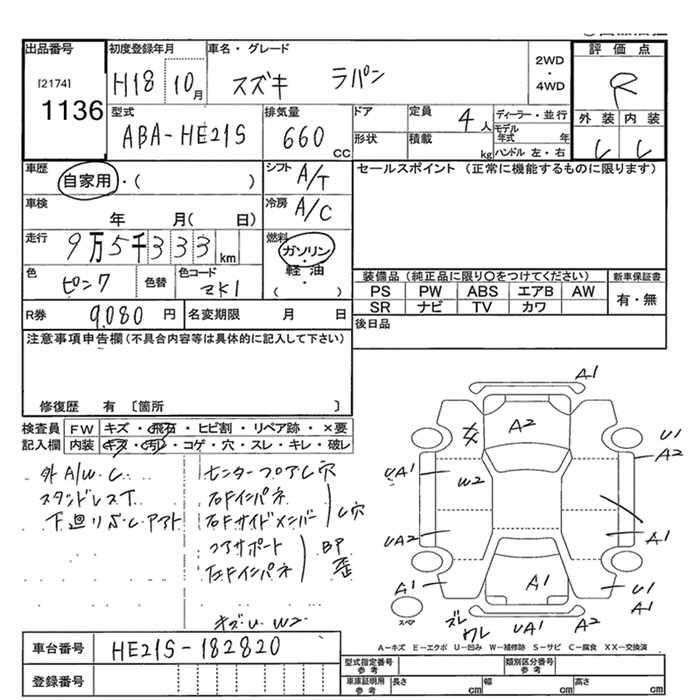 出品番号 初度登録年月 車名・グレード 2WD ・ 4WD 評価点
[2174] 1136 H18 10月 スズキ ラパン R
型式 排気量 ドア 定員 ディーラー・並行 外装 内装
ABA-HE21S 660 CC 4人 モデル年式 年
形状 積載 kg ハンドル 左・右
車歴 シフト セールスポイント (正常に機能するものに限ります)
自家用・( ) A/T
車検 冷房
年 月( 日) A/C
走行 燃料
9万5千333km ガソリン・軽油・( )
色 色替 色コード 装備品(純正品に限り○をつけてください) 新車保証書
ピンク ZK1 PS PW ABS エアB AW 有・無
SR ナビ TV カワ
R券 9,080 円 名変期限 月 日 後日品
注意事項申告欄(不具合内容等は具体的に記入して下さい)
修復歴 有 〔箇所 〕
検査員 FW キズ・飛石・ヒビ割・リペア跡・×要
記入欄 内装 キズ・汚レ・コゲ・穴・スレ・キレ・破レ
外A/W C センターフロアC穴
右Fインパネ
右Fサイドメンバー C穴
コアサポート BP
左Fインパネ 歪
キズU W2
A1
A2
U1
A2
UA1 W2
UA2
A1
A1 A1 U1
A1
スペア
UA1 A2
A-キズ E-エクボ U-凹み W-補修跡 S-サビ C-腐食 XX-交換済
車台番号 HE21S-182820
登録番号
型式指定番号 参考 類別区分番号 参考
車庫証明用 参考 長さ cm 幅 cm 高さ cm